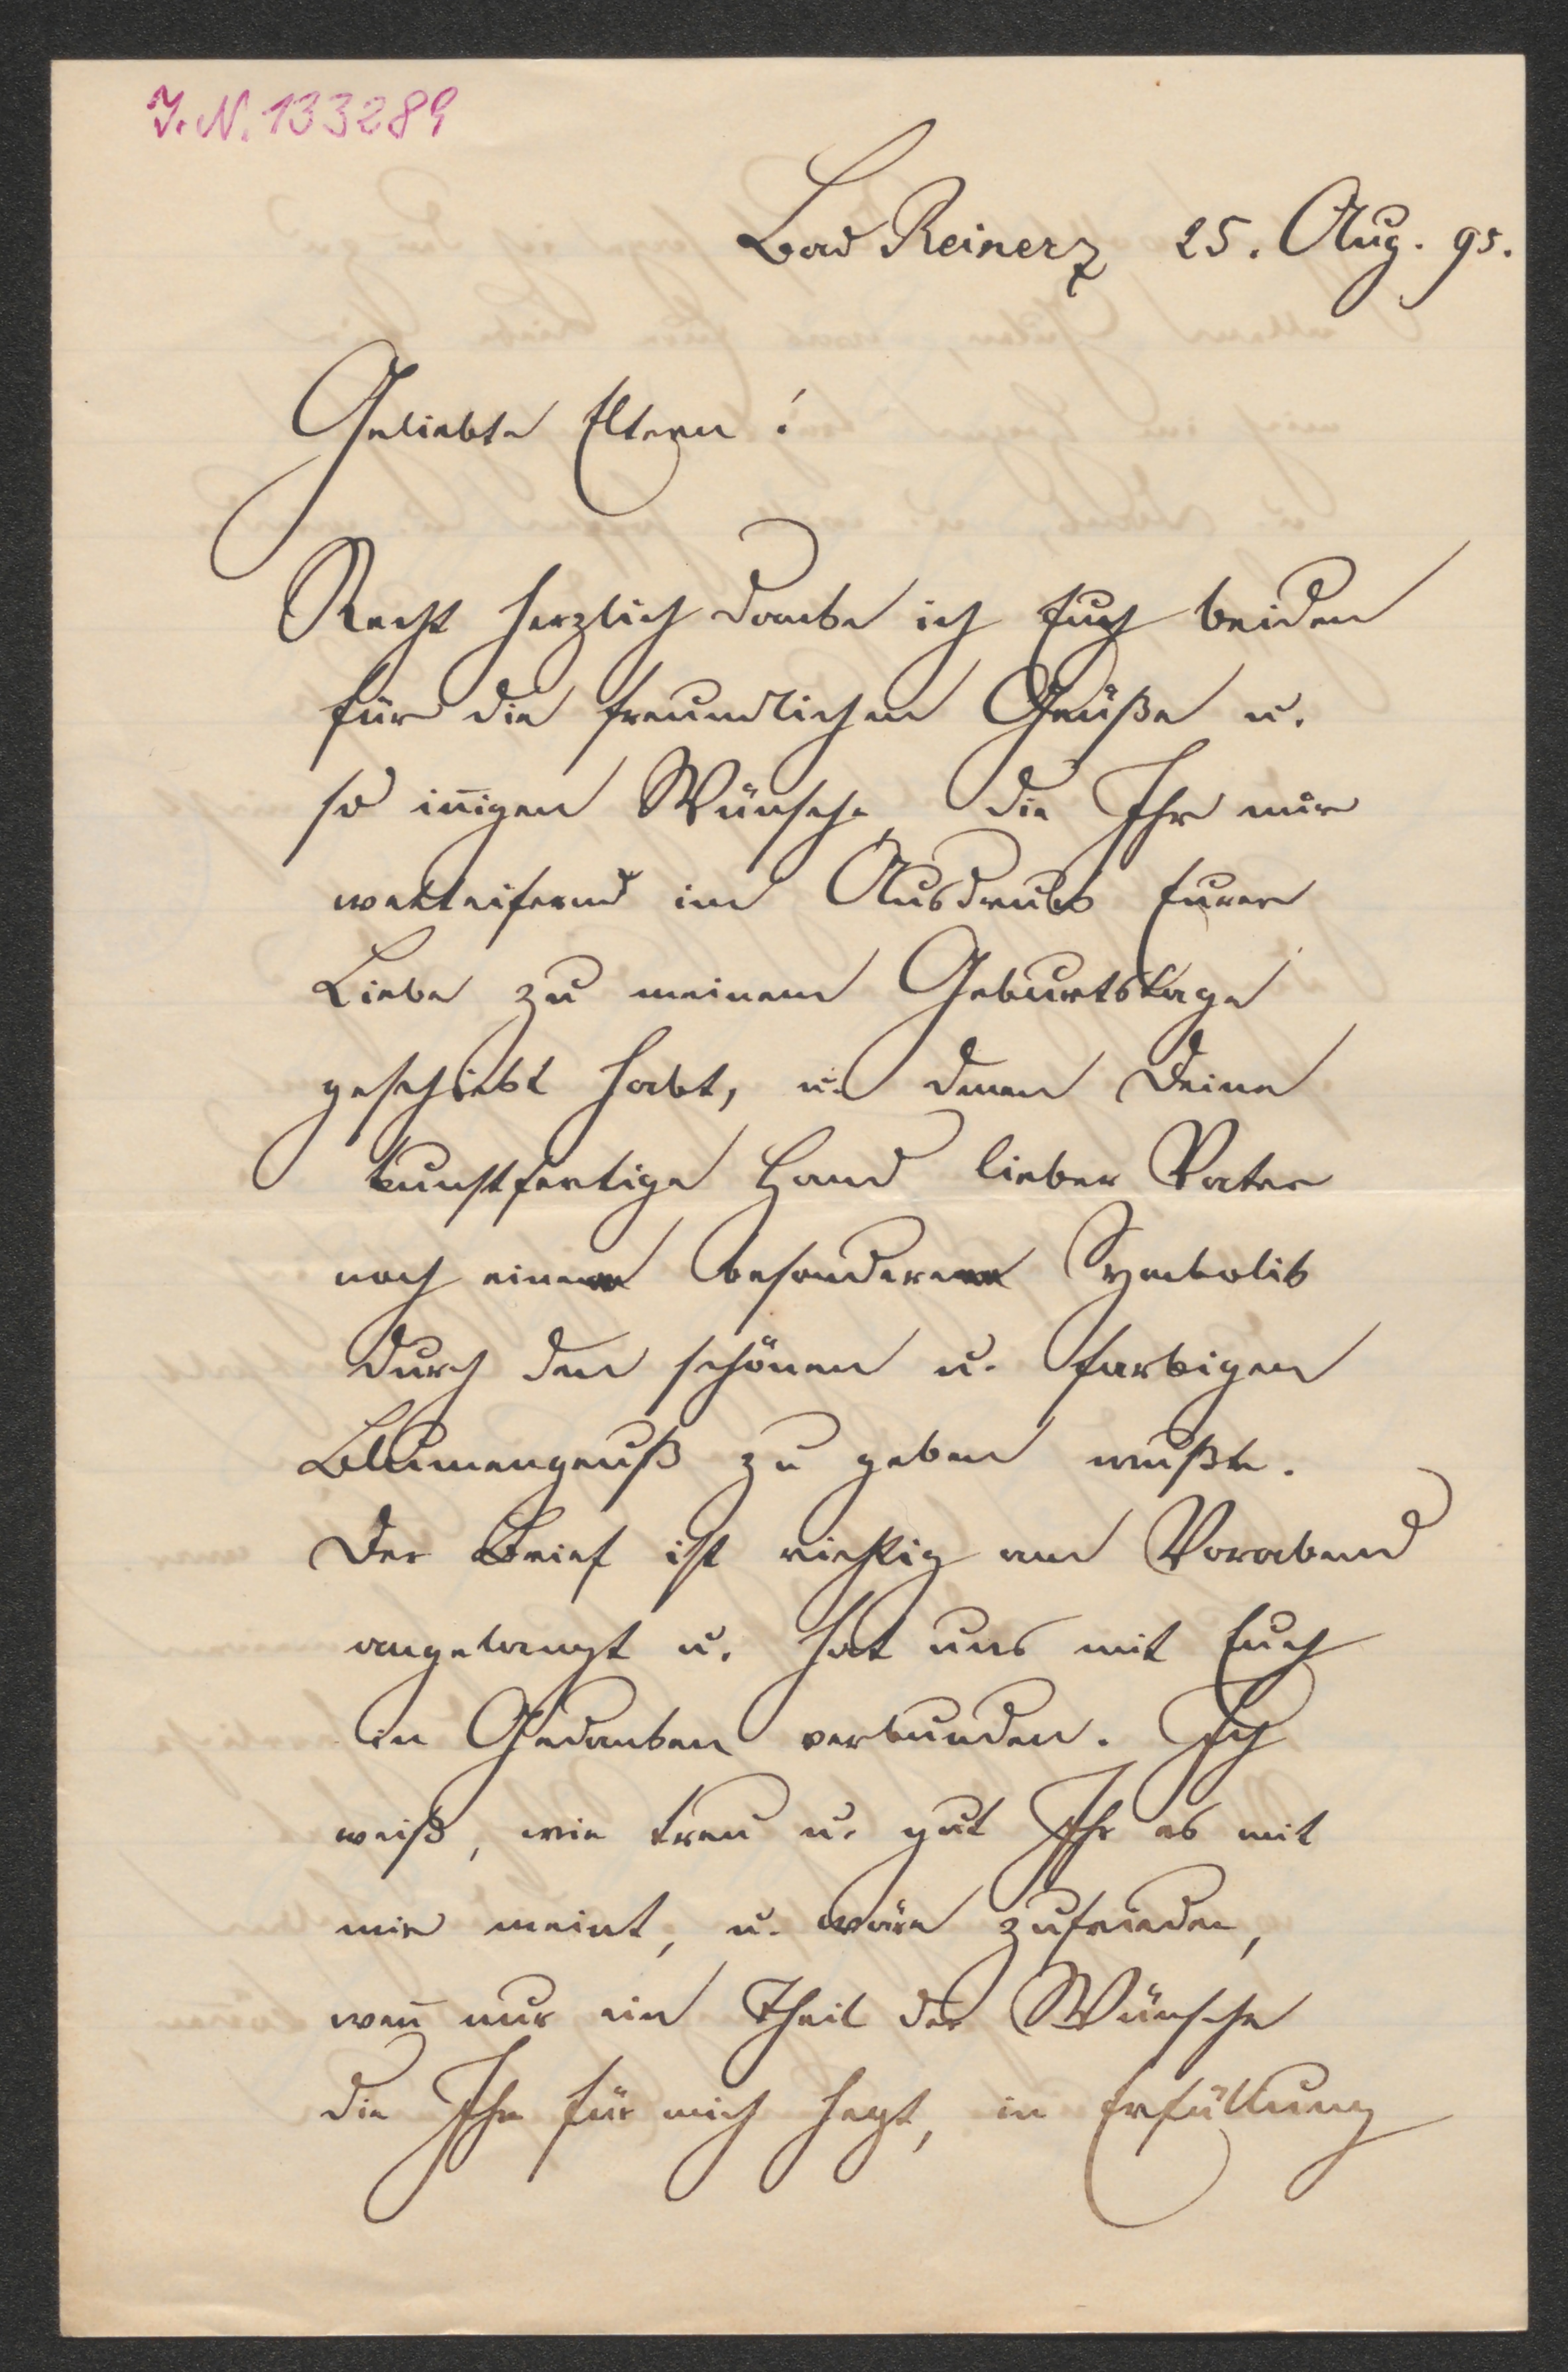 I.N. 133289
Bad Reinerz 25. Aug. 95.
Geliebte Eltern!
Recht herzlich danke ich Euch beiden
für die freundlichen Grüße u.
so iñigen Wünsche, die Ihr mir
wetteifernd im Ausdruck Eurer
Liebe zu meinem Geburtstage
geschickt habt, u. denen Deine
kunstfertige Hand lieber Vater
noch eine besondere Symbolik
durch den schönen u. farbigen
Blumengruß zu geben wußte.
Der Brief ist richtig am Vorabend
angelangt u. hat uns mit Euch
in Gedanken verbunden. Ich
weiß, wie treu u. gut Ihr es mit
mir meint, u. wäre zufrieden,
weñ nur ein Theil der Wünsche
die Ihr für mich hegt, in Erfüllung